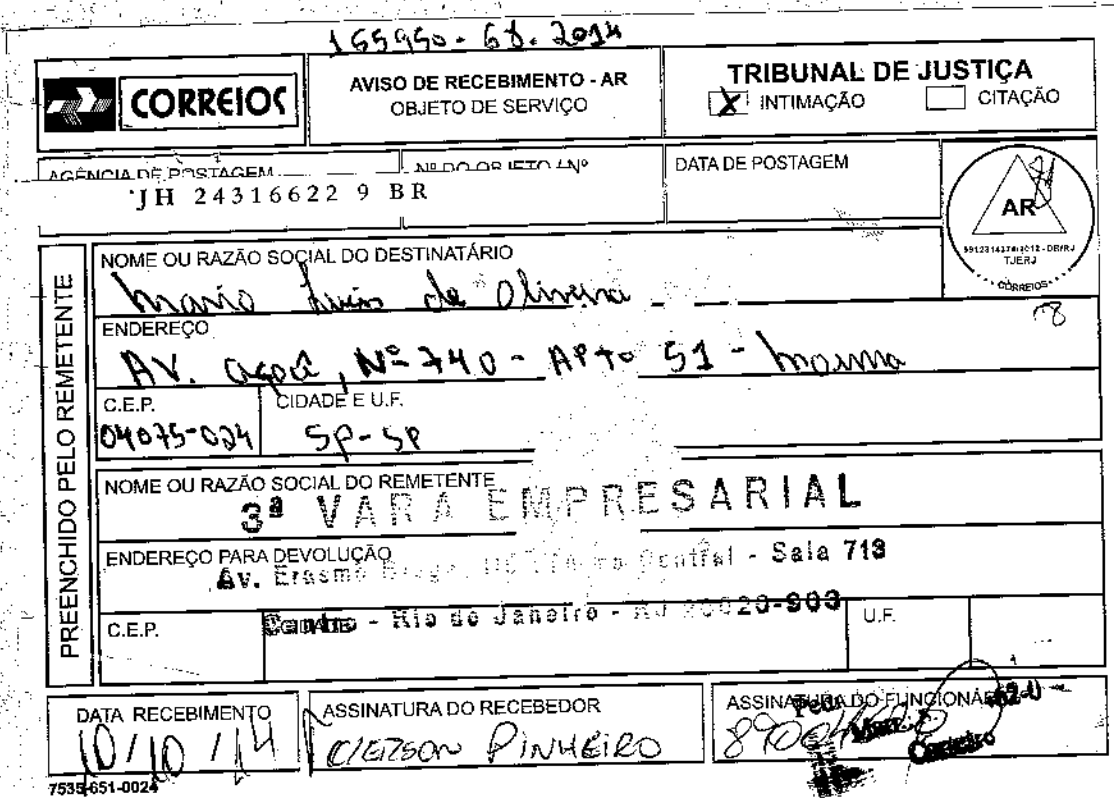 165950-68.2014
CORREIOS
AVISO DE RECEBIMENTO - AR
OBJETO DE SERVIÇO
TRIBUNAL DE JUSTIÇA
X INTIMAÇÃO CITAÇÃO
AGÊNCIA DE POSTAGEM
Nº DO OBJETO / Nº
DATA DE POSTAGEM
JH 24316622 9 BR
AR
TJERJ
CORREIOS
PREENCHIDO PELO REMETENTE
NOME OU RAZÃO SOCIAL DO DESTINATÁRIO
Mario Luis de Oliveira
ENDEREÇO
AV. , Nº 740 - APTO 51 - Moema
C.E.P.
CIDADE E U.F.
04075-024
SP-SP
NOME OU RAZÃO SOCIAL DO REMETENTE
3ª VARA EMPRESARIAL
ENDEREÇO PARA DEVOLUÇÃO
Av. Erasmo Braga, Central - Sala 713
Centro - Rio de Janeiro - RJ 20020-903
C.E.P.
U.F.
DATA RECEBIMENTO
10/10/14
ASSINATURA DO RECEBEDOR
CLEIZSON PINHEIRO
ASSINATURA DO FUNCIONÁRIO
7535-651-0024